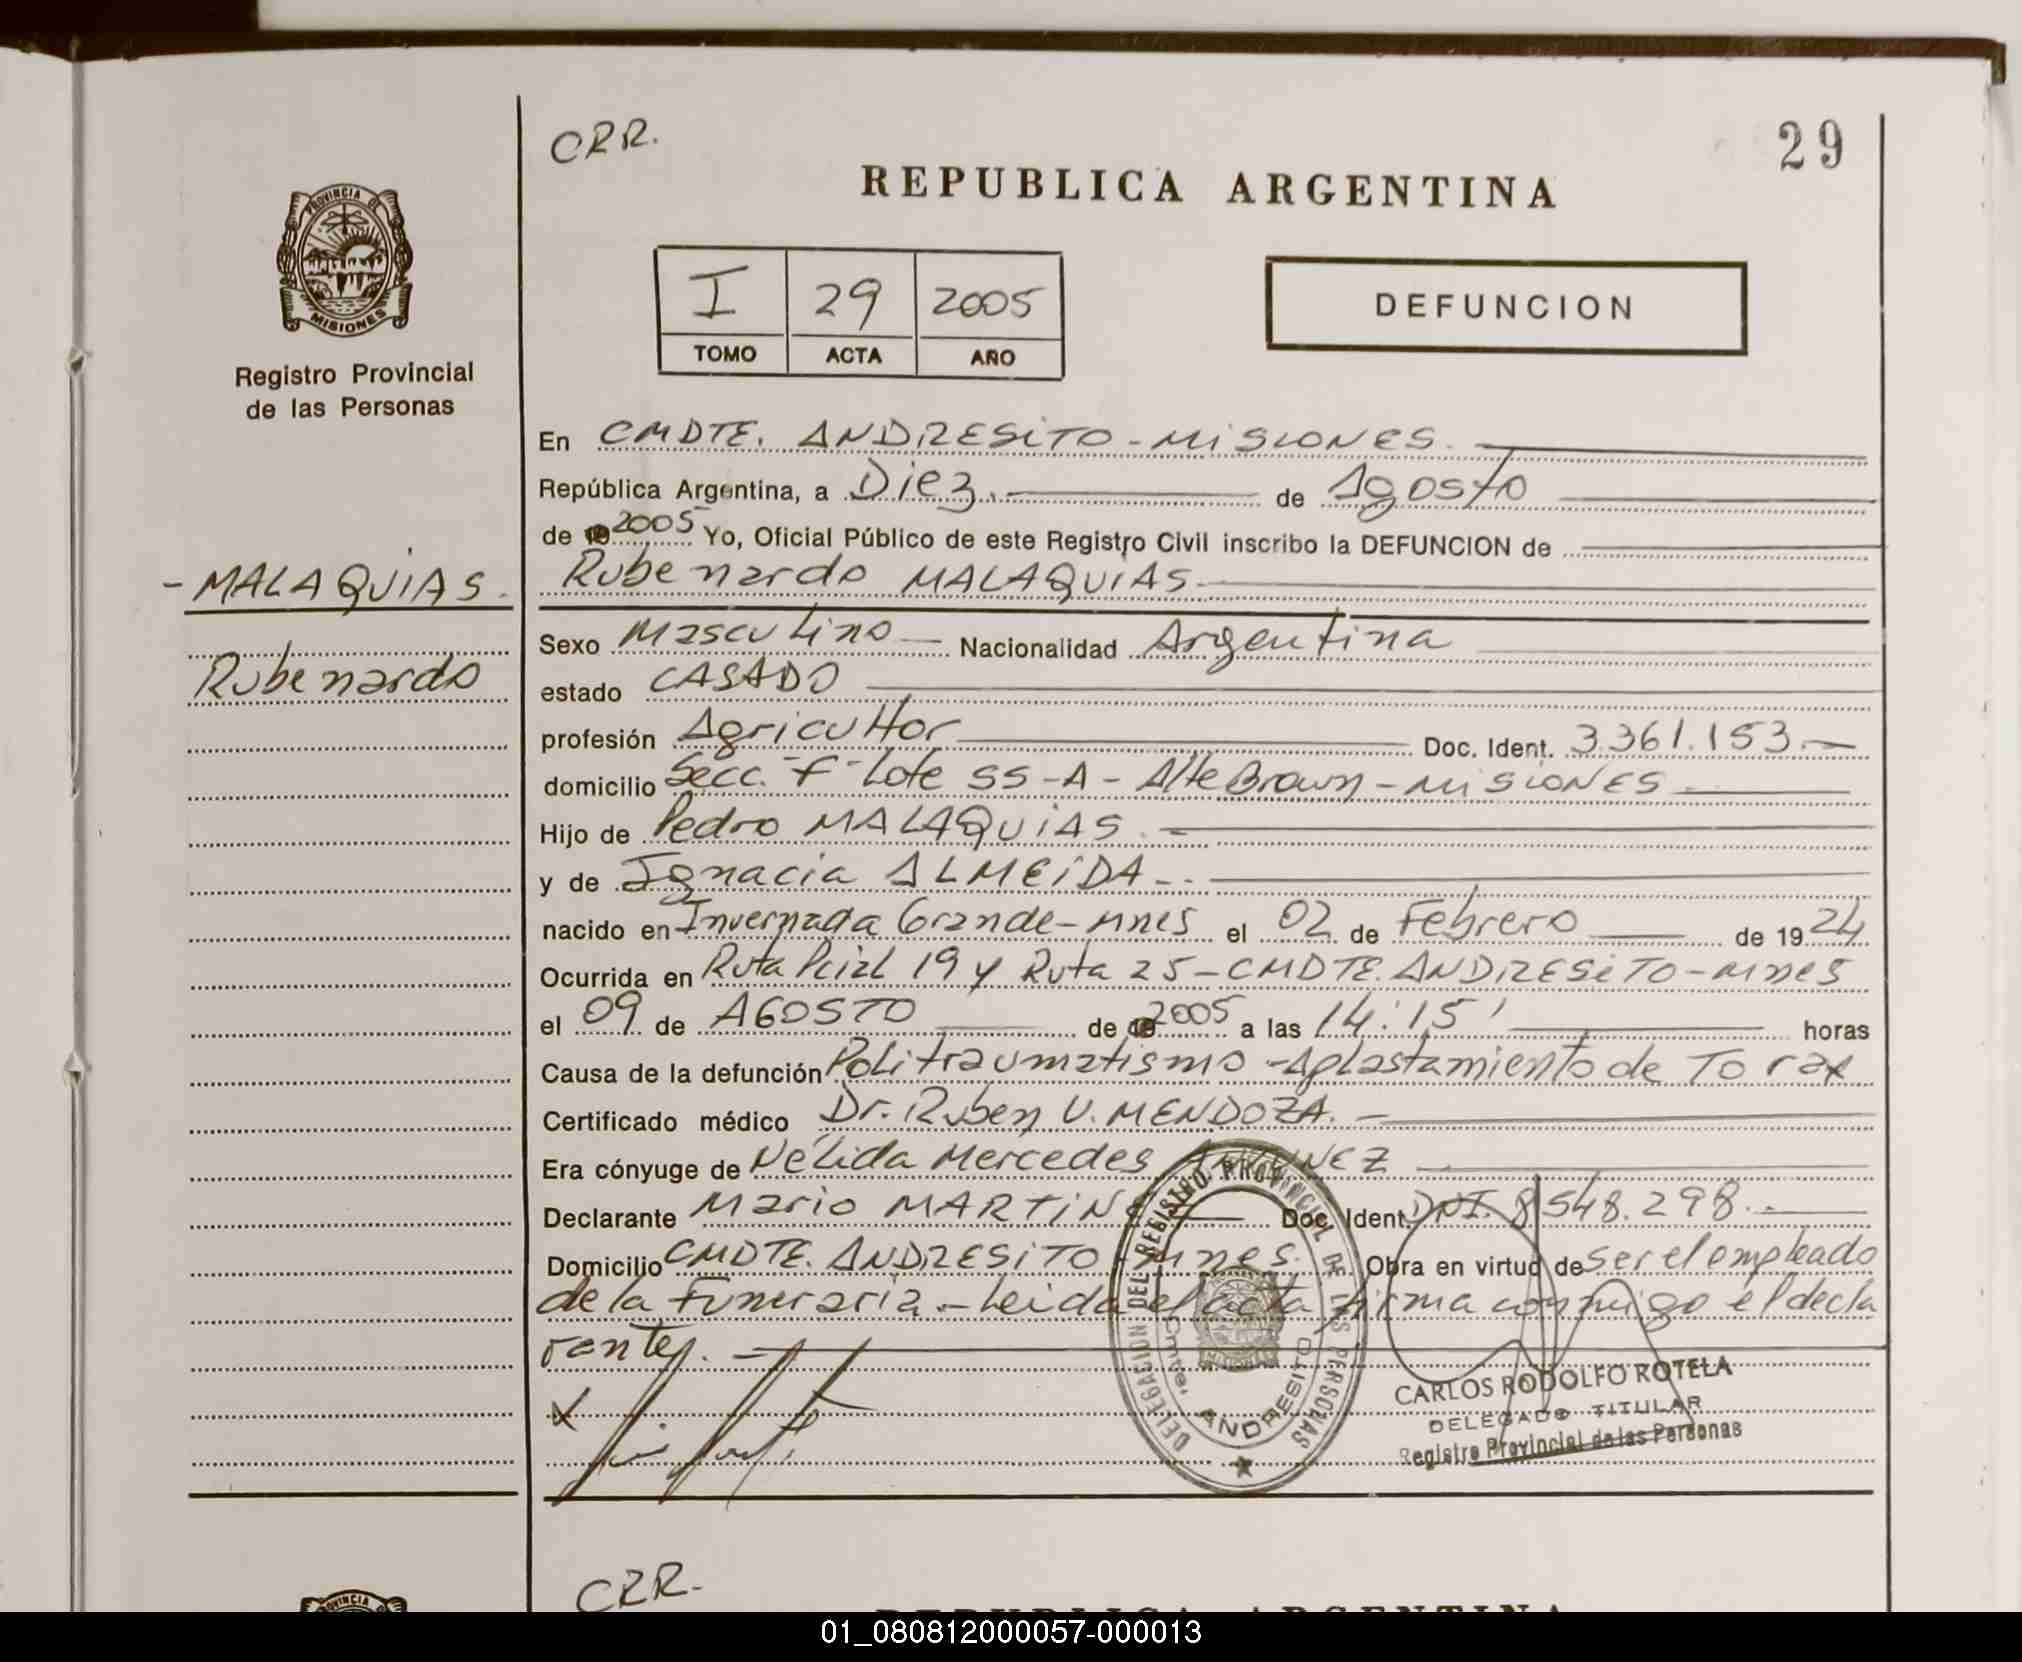 CRR.
29
REPUBLICA ARGENTINA
PROVINCIA DE
MISIONES
Registro Provincial
de las Personas
I 29 2005
TOMO ACTA AÑO
DEFUNCION
En CMDTE. ANDRESITO - MISIONES.
República Argentina, a Diez. de Agosto
de 2005 Yo, Oficial Público de este Registro Civil inscribo la DEFUNCION de
- MALAQUIAS.
Rubenardo MALAQUIAS.
Rubenardo
Sexo Masculino Nacionalidad Argentina
estado CASADO
profesión Agricultor Doc. Ident. 3.361.153.-
domicilio Secc. "F" Lote 55-A - Alte Brown - MISIONES
Hijo de Pedro MALAQUIAS.
y de Ignacia ALMEIDA -.
nacido en Invernada Grande - Mnes el 02 de Febrero de 1924
Ocurrida en Ruta Pcial 19 y Ruta 25 - CMDTE. ANDRESITO - Mnes
el 09 de AGOSTO de 2005 a las 14:15' horas
Causa de la defunción Politraumatismo - Aplastamiento de Torax
Certificado médico Dr. Ruben V. MENDOZA. -
Era cónyuge de Nélida Mercedes
Declarante Mario Doc. Ident. DNI. 8.548.298.-
Domicilio CMDTE. ANDRESITO - Mnes. Obra en virtud de ser el empleado
de la Funeraria. - Leida el acta firma conmigo el decla
rante.
X
DELEGACION DEL REGISTRO PROVINCIAL DE LAS PERSONAS
Cmdte. ANDRESITO
CARLOS RODOLFO ROTELA
DELEGADO TITULAR
Registro Provincial de las Personas
CRR.
PROVINCIA
REPUBLICA ARGENTINA
01_080812000057-000013